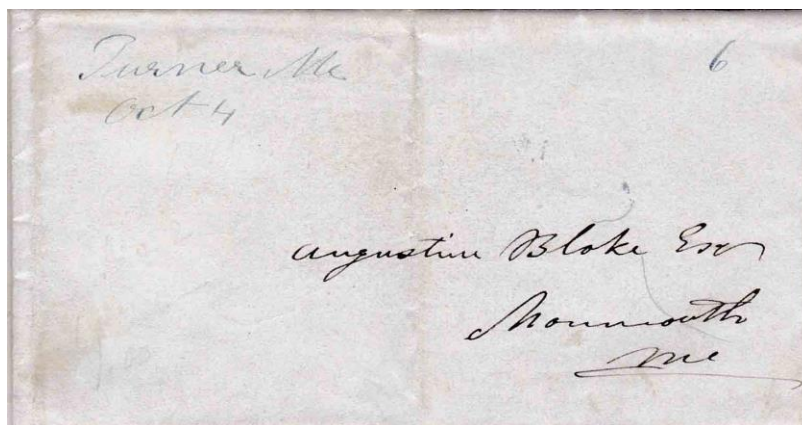 Turner Me
Oct 4
6
Augustine Blake Esqr
Monmouth
Me